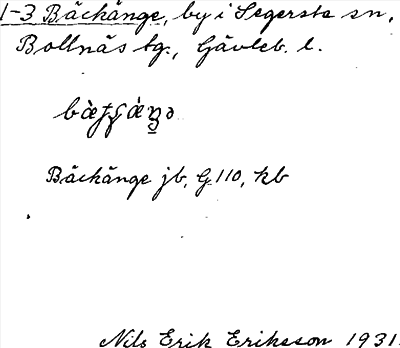 1-3 Bäckänge, by i Segersta sn,
Bollnäs tg., Gävleb. l.
Bäckänge jb, G 110, kb
Nils Erik Eriksson 1931.